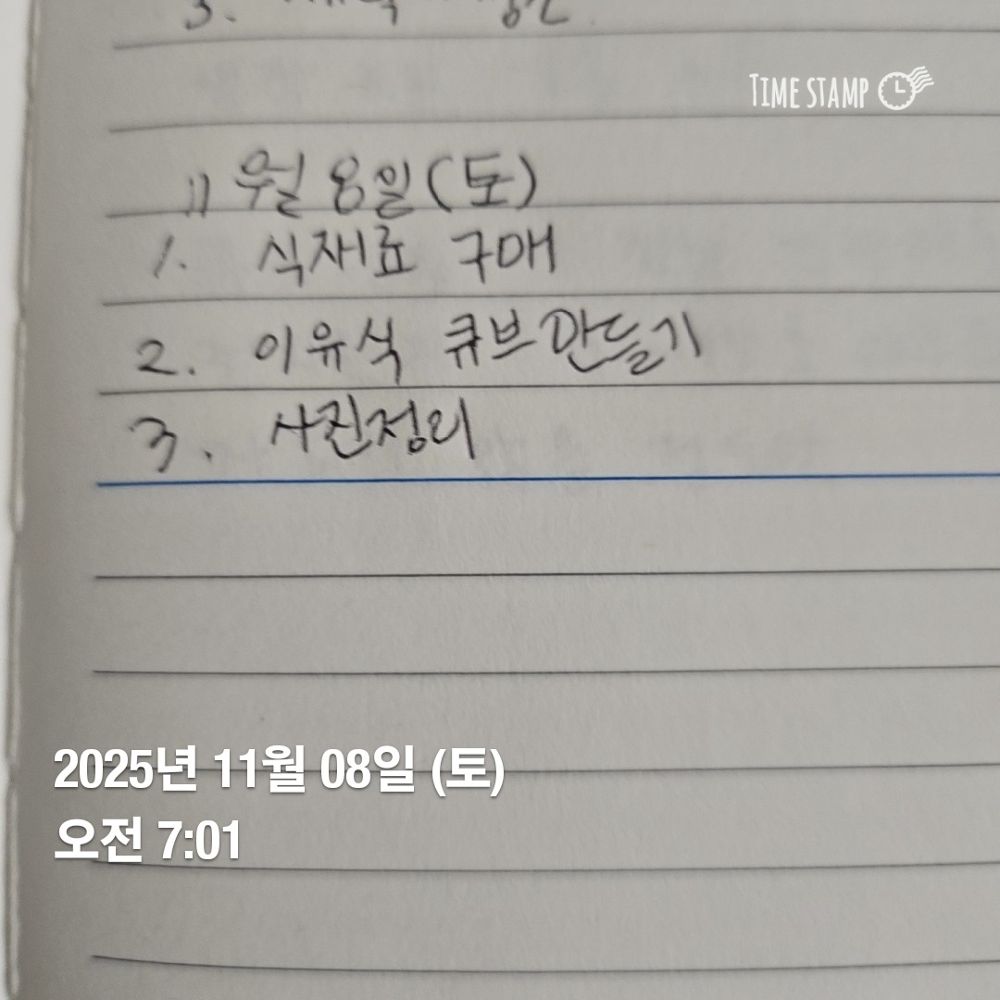 3.
TIME STAMP
11월 8일(토)
1. 식재료 구매
2. 이유식 큐브만들기
3. 사진정리
2025년 11월 08일 (토)
오전 7:01